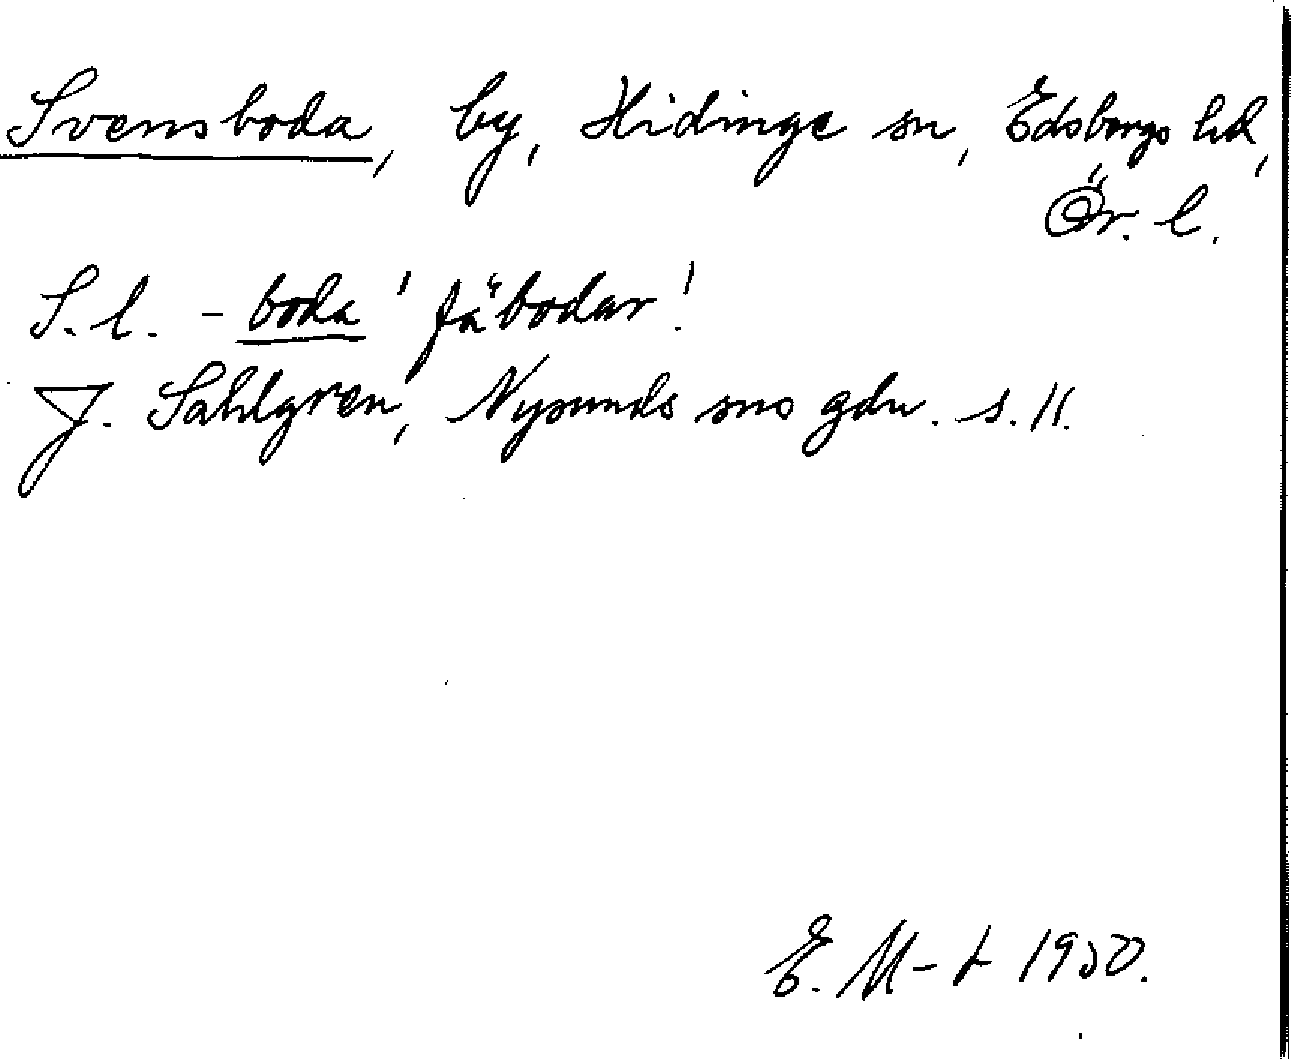 Svensboda, by, Hidinge sn, Edsbergs hd,
Ör. l.
S. l. - boda 'fäbodar'.
J. Sahlgren, Nysunds sns gdn. s. 11.
E. M-t 1950.